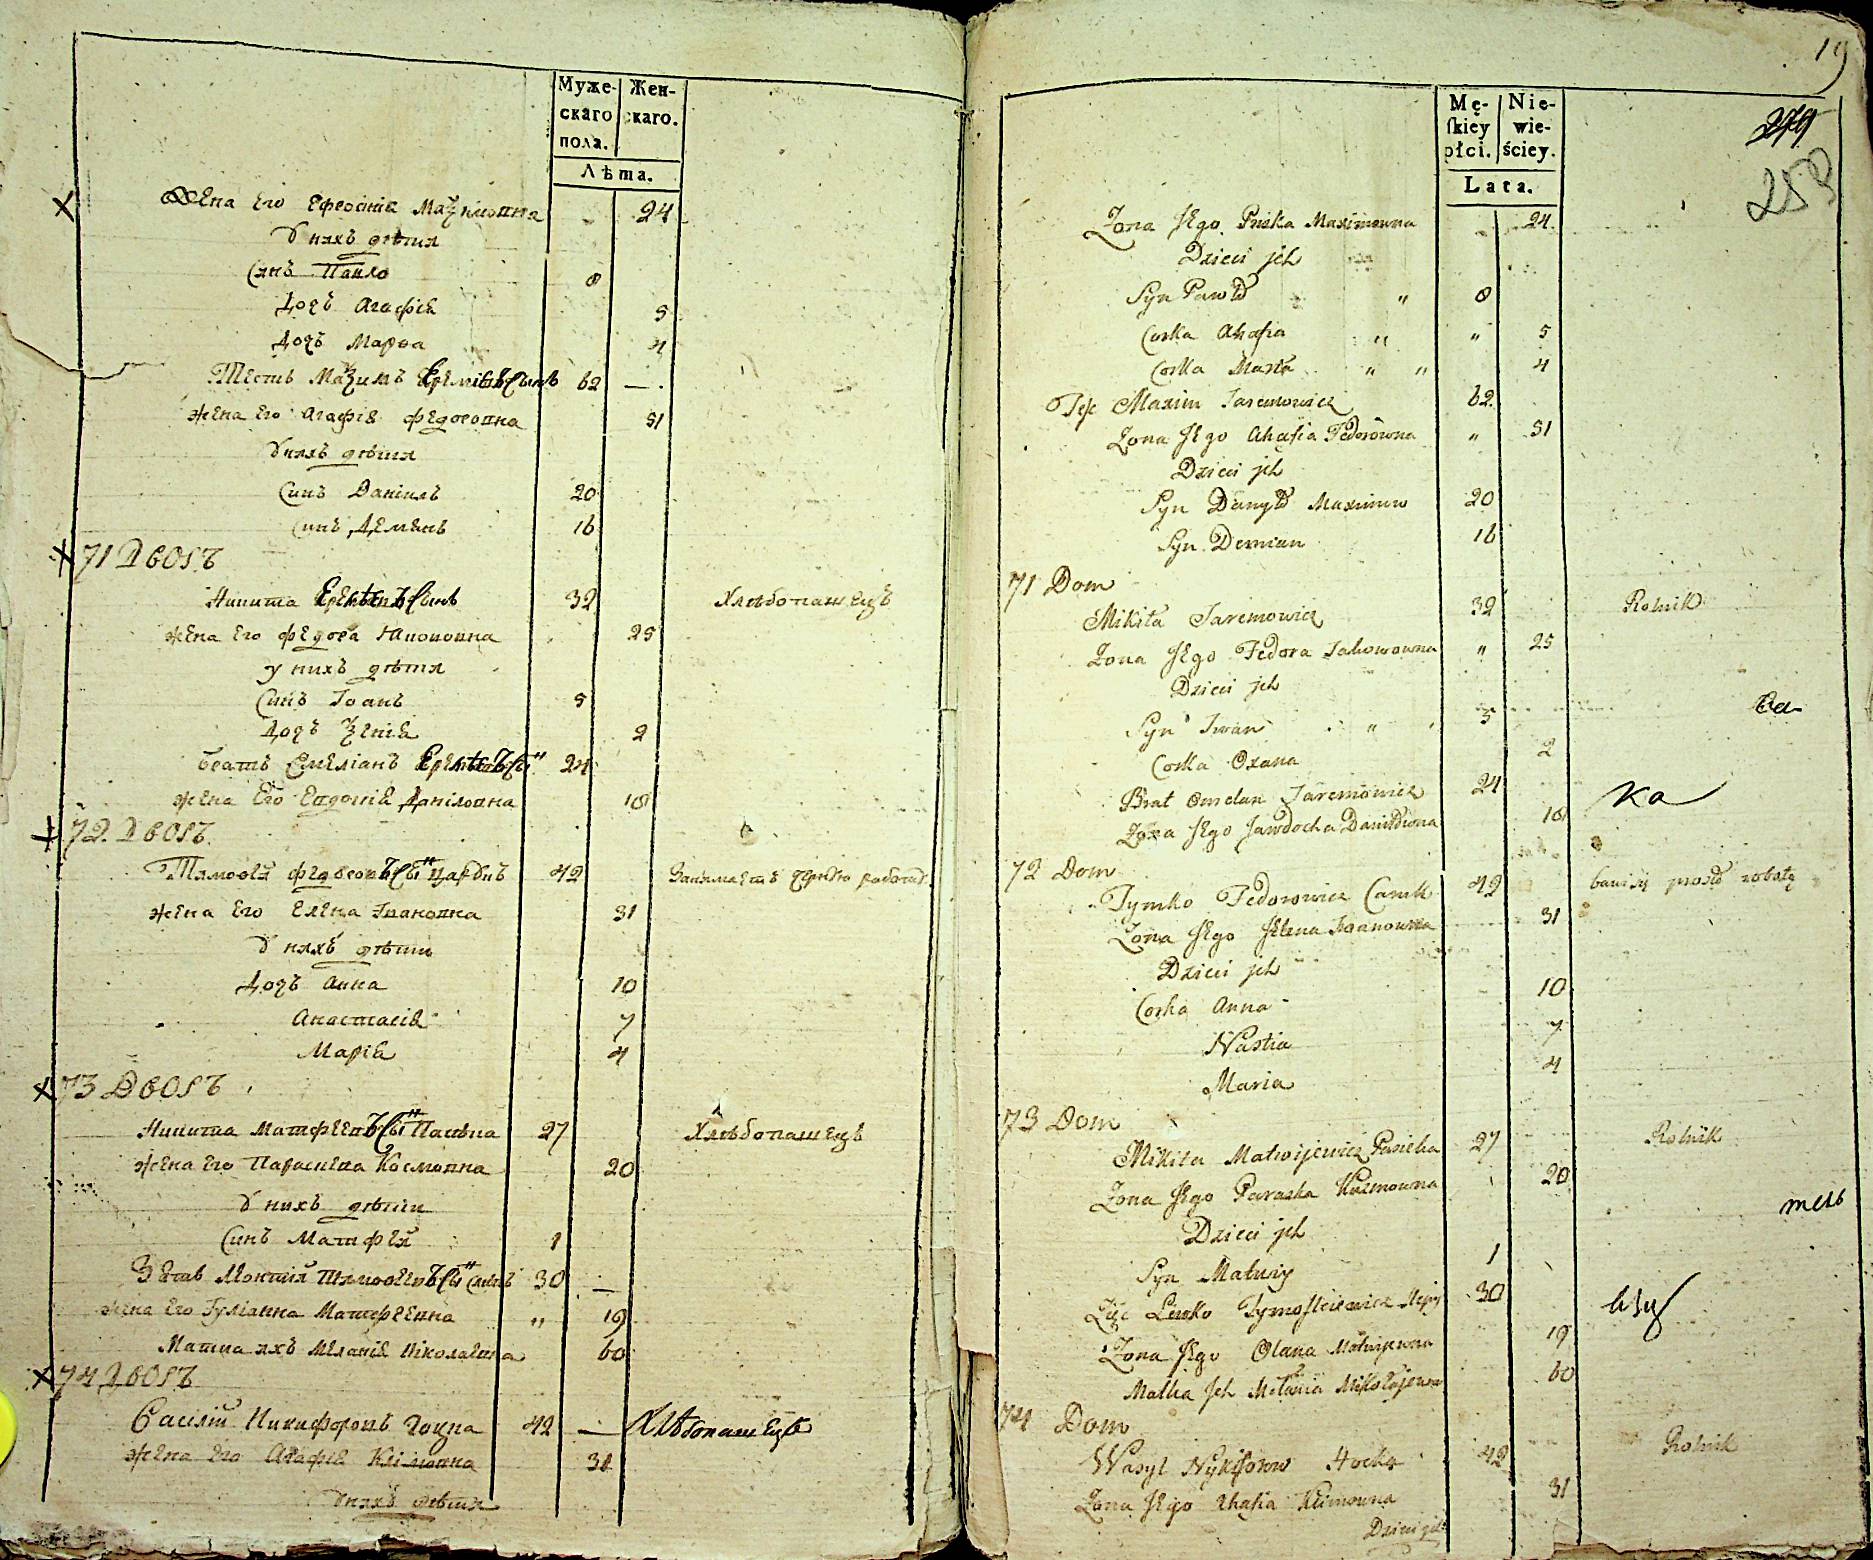 Муже-
скаго
пола.
Жен-
скаго.
Лѣта.
Жена Его Ефросинія Мазимовна 24
У нихъ дѣти
Синъ Павло 8
Дочь Агафія 5
Дочь Марѳа 4
Тесть Мазимъ 62 —
Жена Его Агафія Федоровна 51
У нихъ дѣти
Синъ Даніилъ 20
Синъ Демянъ 16
71 Дворъ
Никита 32 Хлѣбопашецъ
Жена Его Федора Якововна 25
У нихъ дѣти
Синъ Іоанъ 5
Дочь Зенія 2
Братъ Емеліанъ 24
Жена Его Евдокія Даніловна 18
72 Дворъ
Тимоѳій 42 Занимаетъ работ
Жена Его Елена Івановна 31
У нихъ дѣти
Дочь Анна 10
Анастасія 7
Марія 4
73 Дворъ
Никита 27 Хлѣбопашецъ
Жена Его Параскева Космовна 20
У нихъ дѣти
Синъ Матфій 1
Зять Леонтій 30 —
Жена Его Іуліанна Матфеевна " 19
Матка ихъ Меланія Николаевна 60
74 Дворъ
Василій Никифоровъ Гоцка 42 — Хлѣбопашецъ
Жена Его Агафія Клімовна 31
У нихъ дѣти
19
253
Mę-
skiey
płci.
Nie-
wie-
ściey.
Lata.
Żona Jego Pruska Maximowna 24
Dzieci jch
Syn Pawło " 8
Corka Ahafia " " 5
Corka Marta " " 4
Maxim Jaremowicz 62
Żona Jego Ahafia Fedorowna " 51
Dzieci jch
Syn Danyło Maximow 20
Syn Demian 16
71 Dom
Mikita Jaremowicz 32 Rolnik
Żona Jego Fedora Jakowowna " 25
Dzieci jch
Syn Iwan " 5
Corka Oxana 2
Brat Omelan Jaremowicz 24 ка
Żona Jego Jawdocha Daniłowna 18
72 Dom
Tymko Fedorowicz 42 robotą
Żona Jego Jelena Iwanowna 31
Dzieci jch
Corka Anna 10
Nastia 7
Maria 4
73 Dom
Mikita Matwijewicz Pasieka 27 Rolnik
Żona Jego Paraska Kuzmowna 20
тель
Dzieci jch
Syn Matwiy 1
Zięć Lewko 30
Żona Jego Olana Matwijewna 19
Matka Jch Melania Mikołajewna 60
74 Dom
Wasyl Nykiforow Hocka 42 Rolnik
Żona Jego Ahafia Klimowna 31
Dzieci jch